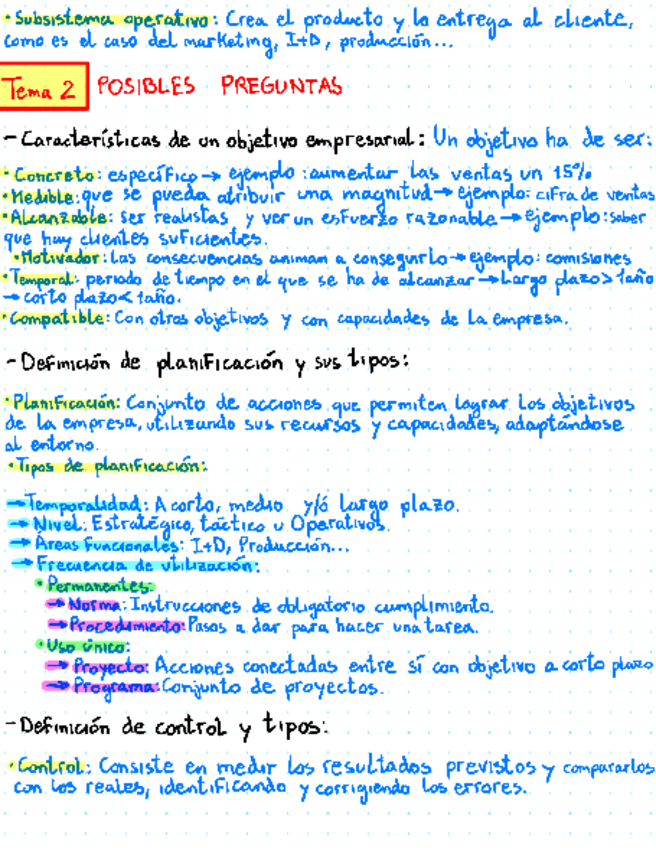 • Subsistema operativo: Crea el producto y lo entrega al cliente,
como es el caso del marketing, I+D, producción...
Tema 2 POSIBLES PREGUNTAS
- Características de un objetivo empresarial: Un objetivo ha de ser:
• Concreto: específico → ejemplo: aumentar las ventas un 15%
• Medible: que se pueda atribuir una magnitud → ejemplo: cifra de ventas
• Alcanzable: ser realistas y ver un esfuerzo razonable → ejemplo: saber
que hay clientes suficientes.
• Motivador: las consecuencias animan a conseguirlo → ejemplo: comisiones
• Temporal: periodo de tiempo en el que se ha de alcanzar → Largo plazo > 1año
→ corto plazo < 1año.
• Compatible: Con otros objetivos y con capacidades de la empresa.
- Definición de planificación y sus tipos:
• Planificación: Conjunto de acciones que permiten lograr los objetivos
de la empresa, utilizando sus recursos y capacidades, adaptándose
al entorno.
• Tipos de planificación:
→ Temporalidad: A corto, medio y/ó largo plazo.
→ Nivel: Estratégico, táctico u Operativos.
→ Áreas Funcionales: I+D, Producción...
→ Frecuencia de utilización:
• Permanentes:
→ Norma: Instrucciones de obligatorio cumplimiento.
→ Procedimiento: Pasos a dar para hacer una tarea.
• Uso único:
→ Proyecto: Acciones conectadas entre sí con objetivo a corto plazo
→ Programa: Conjunto de proyectos.
- Definición de control y tipos:
• Control: Consiste en medir los resultados previstos y compararlos
con los reales, identificando y corrigiendo los errores.